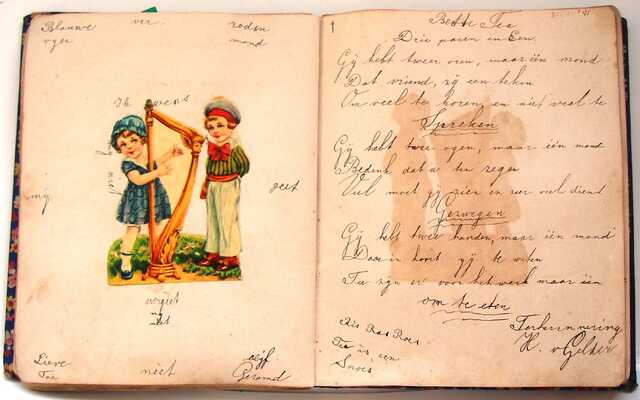 Blauwe ver roden
oges mond
Ik wens
mij geet
vergiet
mij
niet
Lieve niet
Tee Gezond
1
Bette Tea
Drie paren en Een.
Gij hebt twee oren, maar één mond
Dat vriend, zij een teken
Om veel te horen, en niet veel te
Spreken
Gij hebt twee ogen, maar één mond
Bedenk dat u ten regen
Veel moet gij zien en zeer veel dient
Gezwegen
Gij hebt twee handen, maar één mond
Daar in hoort gij te weten
Twee zijn er voor het werk maar één
om te eten
Ris Ras Roes Ter herinnering
Tea is een H. v Gelder
Snoes